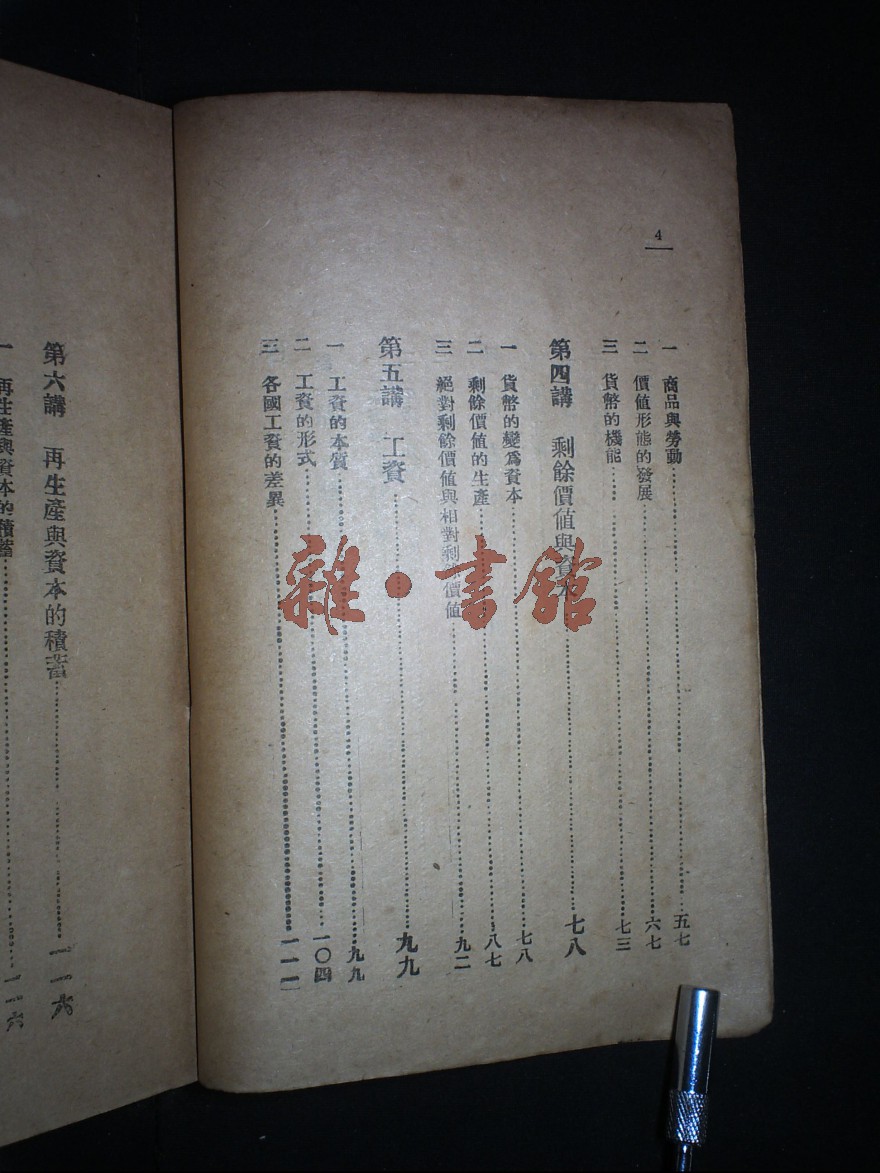 4
一 商品與勞動……五七
二 價值形態的發展……六七
三 貨幣的機能……七三
第四講 剩餘價值與資本……七八
一 貨幣的變爲資本……七八
二 剩餘價值的生產……八七
三 絕對剩餘價值與相對剩餘價值……九二
第五講 工資……九九
一 工資的本質……九九
二 工資的形式……一〇四
三 各國工資的差異……一一一
第六講 再生產與資本的積蓄……一一六
一 再生產與資本的積蓄……一一六
雜·書館